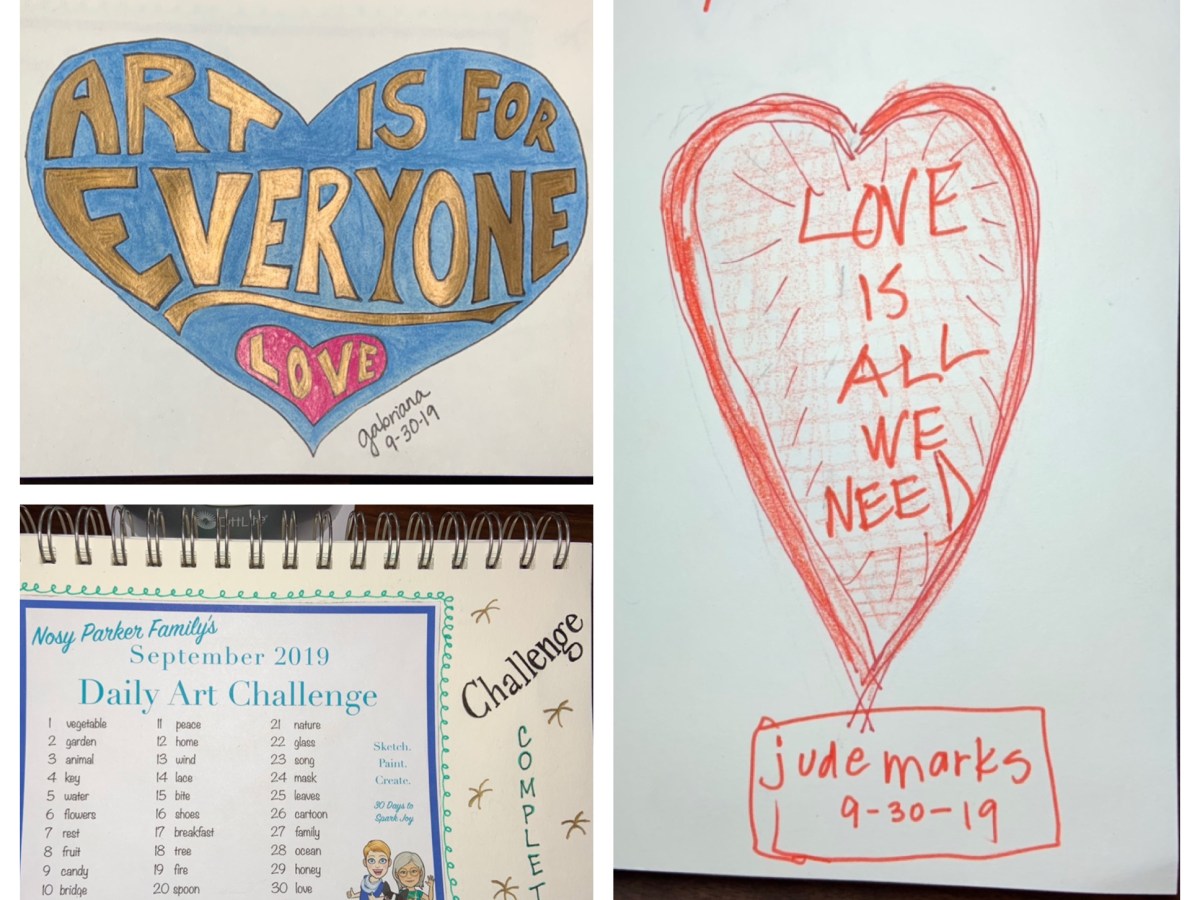 ART IS FOR
EVERYONE
LOVE
gabriana
9-30-19
LOVE
IS
ALL
WE
NEED
jude marks
9-30-19
Nosy Parker Family's
September 2019
Daily Art Challenge
1 vegetable
2 garden
3 animal
4 key
5 water
6 flowers
7 rest
8 fruit
9 candy
10 bridge
11 peace
12 home
13 wind
14 lace
15 bite
16 shoes
17 breakfast
18 tree
19 fire
20 spoon
21 nature
22 glass
23 song
24 mask
25 leaves
26 cartoon
27 family
28 ocean
29 honey
30 love
Sketch.
Paint.
Create.
30 Days to
Spark Joy
Challenge
COMPLET